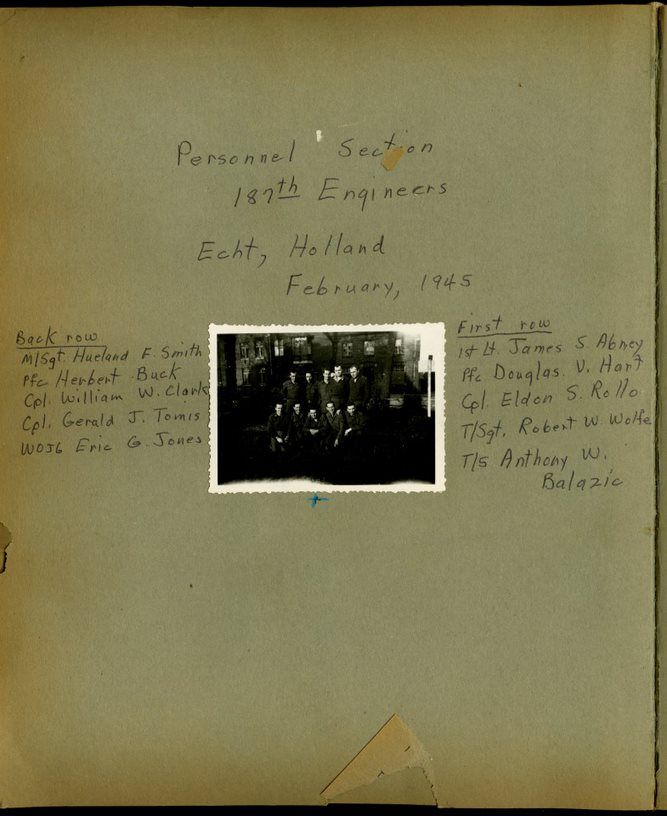 Personnel Section
187th Engineers
Echt, Holland
February, 1945
Back row
M/Sgt. Hueland F. Smith
Pfc Herbert Buck
Cpl. William W. Clark
Cpl. Gerald J. Tomis
WOJG Eric G. Jones
First row
1st Lt. James S. Abney
Pfc Douglas V. Hart
Cpl. Eldon S. Rollo
T/Sgt. Robert W. Wolfe
T/5 Anthony W.
Balazic